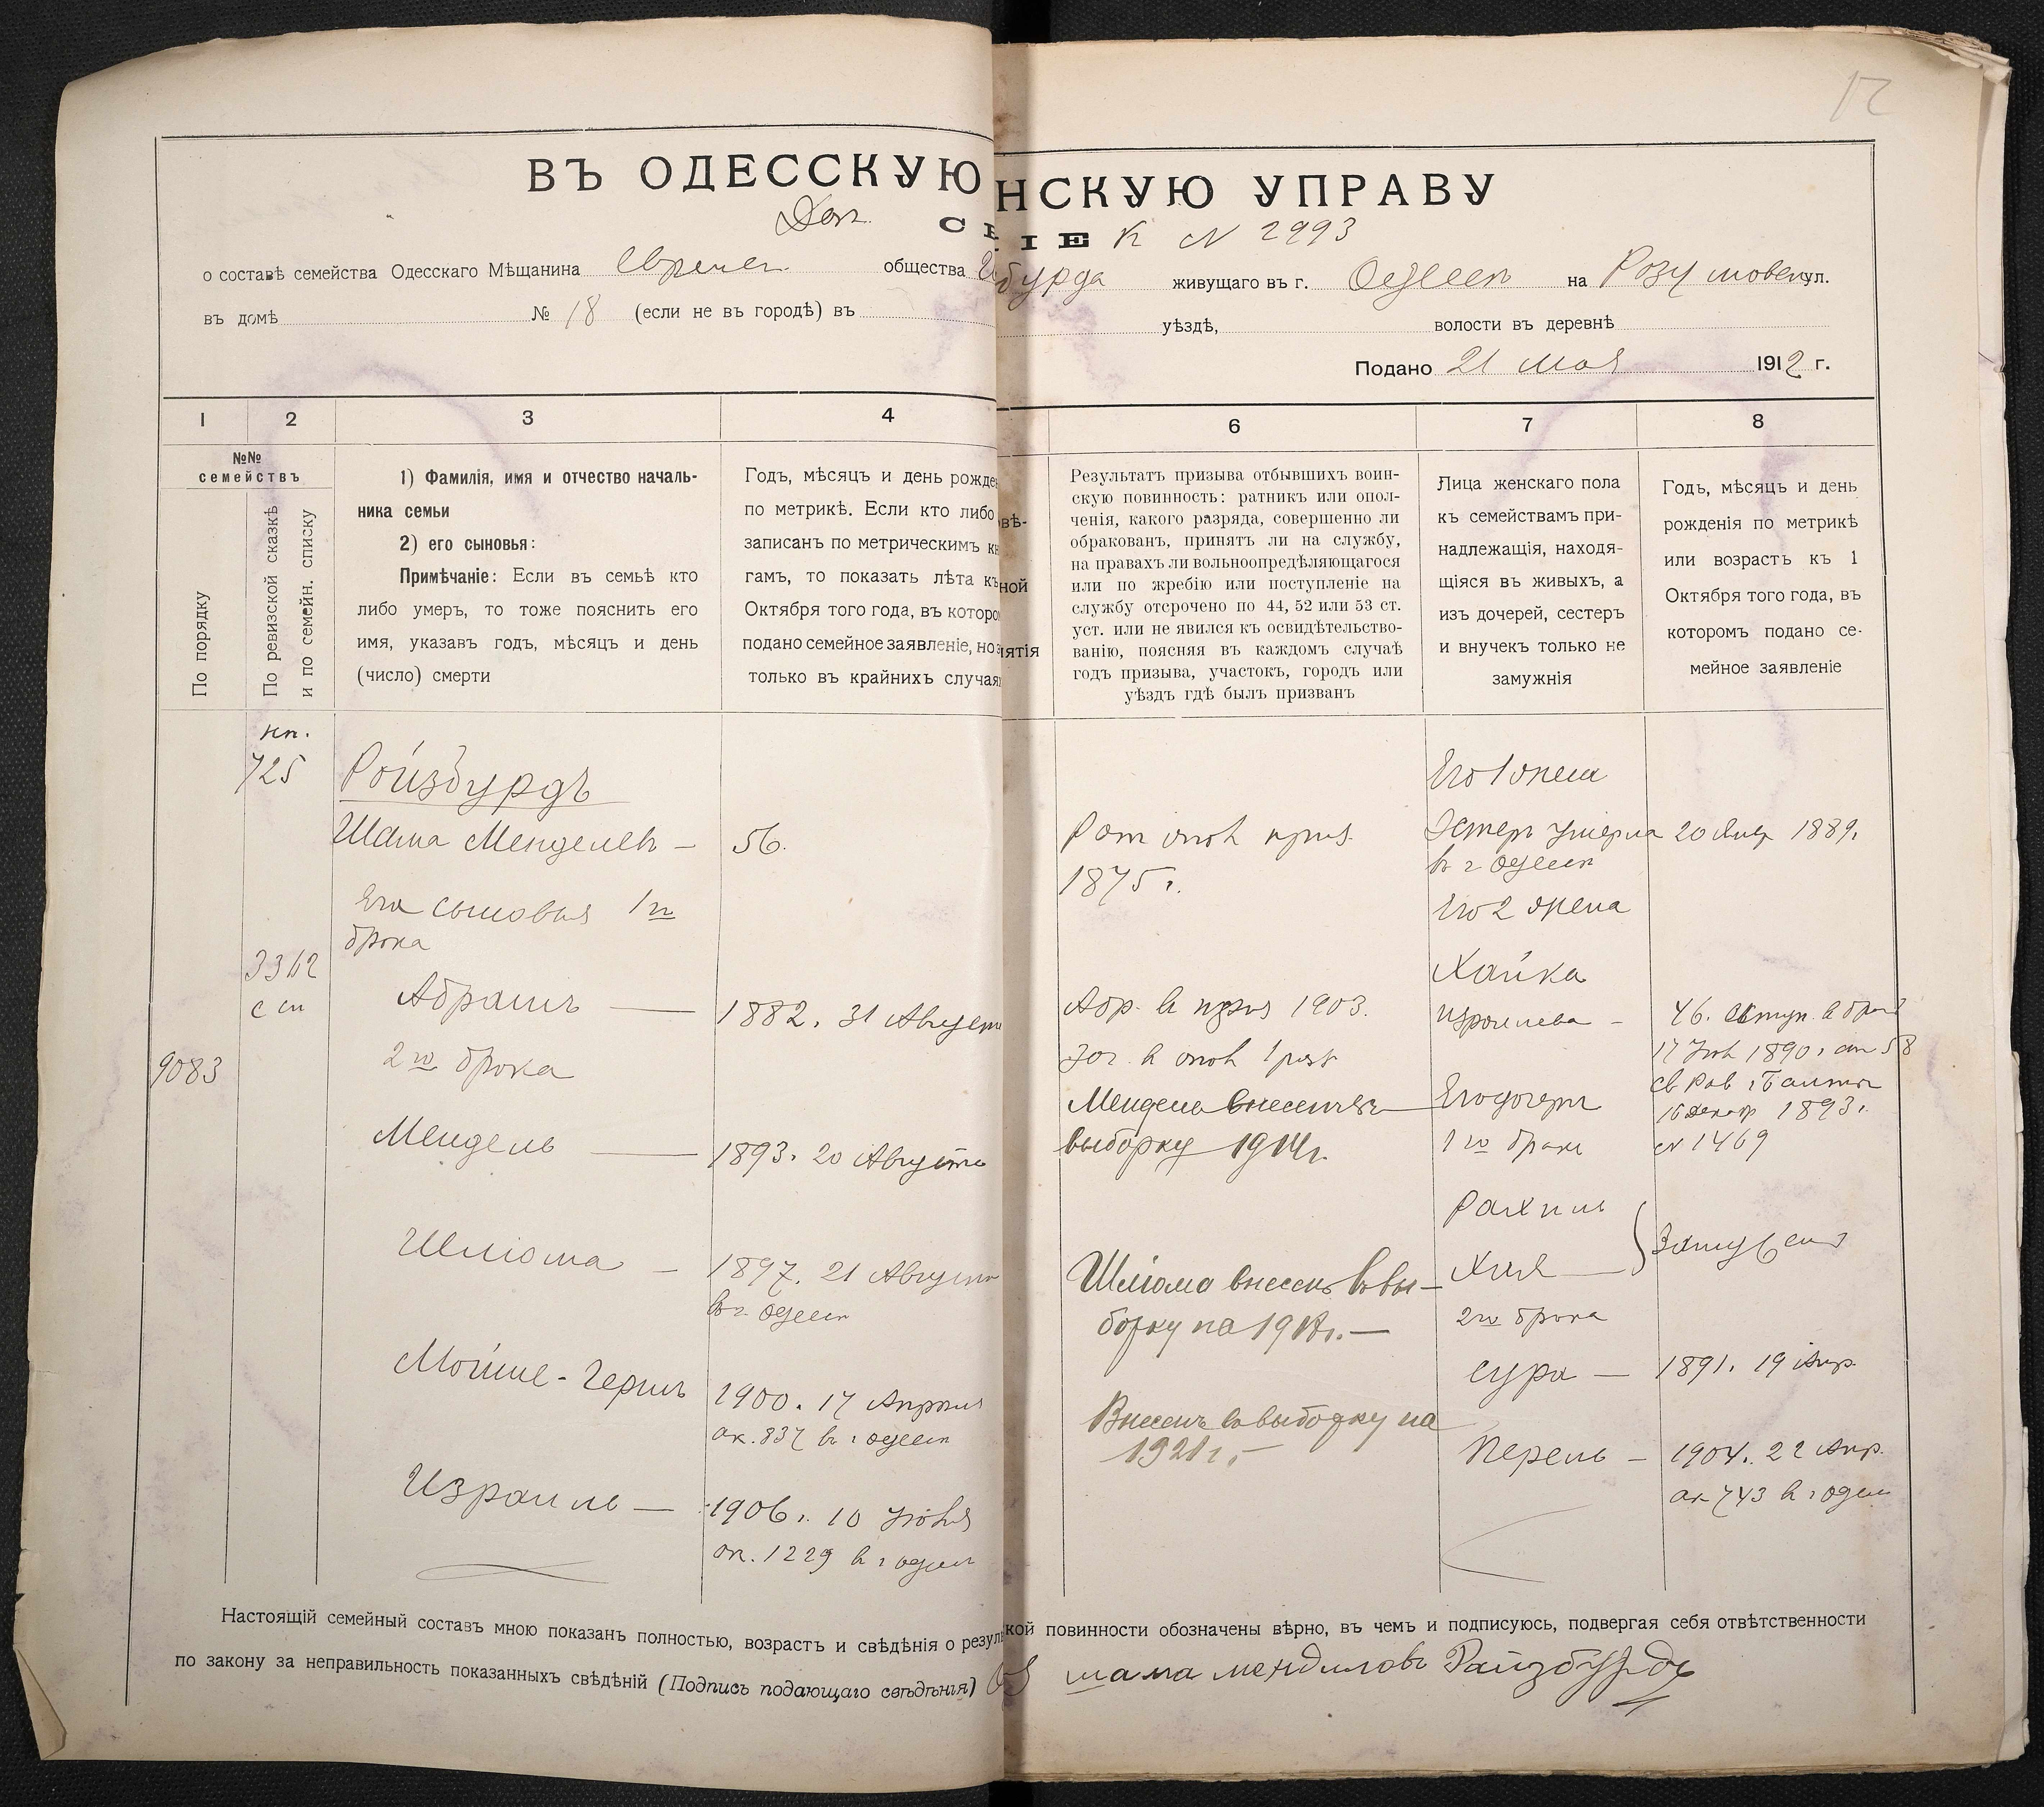 ВЪ ОДЕССКУЮ НСКУЮ УПРАВУ
Доп. К № 2993
о составѣ семейства Одесскаго Мѣщанина общества бурда живущаго въ г. Одессѣ на ул.
въ домѣ № 18 (если не въ городѣ) въ уѣздѣ, волости въ деревнѣ
Подано 21 мая 1912 г.
1 2 3 4 6 7 8
№№ семействъ
По порядку
По ревизской сказкѣ
и по семейн. списку
1) Фамилія, имя и отчество началь-
ника семьи
2) его сыновья:
Примѣчаніе: Если въ семьѣ кто
либо умеръ, то тоже пояснить его
имя, указавъ годъ, мѣсяцъ и день
(число) смерти
Годъ, мѣсяцъ и день рожде
по метрикѣ. Если кто либо
записанъ по метрическимъ к
гамъ, то показать лѣта къ
Октября того года, въ которо
подано семейное заявленіе, но
только въ крайнихъ случая
вѣ-
ной
ятія
Результатъ призыва отбывшихъ воин-
скую повинность: ратникъ или опол-
ченія, какого разряда, совершенно ли
обракованъ, принятъ ли на службу,
на правахъ ли вольноопредѣляющагося
или по жребію или поступленіе на
службу отсрочено по 44, 52 или 53 ст.
уст. или не явился къ освидѣтельство-
ванію, поясняя въ каждомъ случаѣ
годъ призыва, участокъ, городъ или
уѣздъ гдѣ былъ призванъ
Лица женскаго пола
къ семействамъ при-
надлежащія, находя-
щіяся въ живыхъ, а
изъ дочерей, сестеръ
и внучекъ только не
замужнія
Годъ, мѣсяцъ и день
рожденія по метрикѣ
или возрастъ къ 1
Октября того года, въ
которомъ подано се-
мейное заявленіе
725
Ройзбурдъ
Шама Менделевъ — 56.
Его сыновья 1го
брака
3362
Абрамъ — 1882. 31 Августа
9083
2го брака
Мендель — 1893. 20 Августа
Шліома — 1897. 21 Августа
в г. Одессѣ
Мойше-Гершъ 1900. 17 Апрѣля
ак. 837 в г. Одессѣ
Израиль — 1906 г. 10 Іюня
ак. 1229 в г. Одессѣ
Рат опол приз.
1875 г.
Абр. в приз 1903.
Мендель внесенъ в
выборку 1914 г.
Шліома внесенъ в вы-
борку на 1918 г. —
Внесенъ в выборку на
1921 г. —
Его 1 жена
Эстеръ умерла 20 Янв 1889.
в г Одессѣ
Его 2 жена
Хайка
Израилева — 46.
1890.
16 Декабр 1893 г.
№ 1469
Его дочери
1го брака
Рахиль
Хая — } Замужем
2го брака
Сура — 1891. 19 Апр.
Перель — 1904. 22 Апр.
ак 743 в г Одессѣ
Настоящій семейный составъ мною показанъ полностью, возрастъ и свѣдѣнія о резуль кой повинности обозначены вѣрно, въ чемъ и подписуюсь, подвергая себя отвѣтственности
по закону за неправильность показанныхъ свѣдѣній (Подпись подающаго свѣдѣнія) шама мендиловъ Райзбурдъ